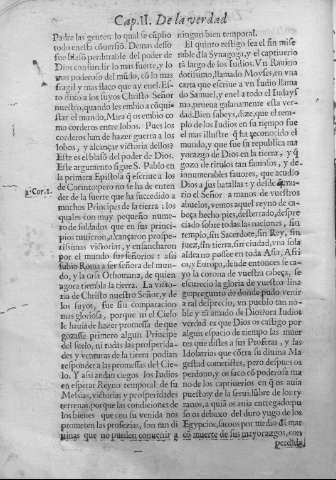 Cap. II. De la verdad
Padre las gentes: lo qual se cũplio
todo en esta conuersiõ. Demas desso
fue blasõ perdurable del poder de
Dios confundir lo mas fuerte, y lo
mas poderoso del mũdo, cõ lo mas
fragil y mas flaco que ay en el. Es-
to dixo a los suyos Christo Señor
nuestro, quando les embio a cõquis-
tar el mundo, Mirá q̃ os embio co
mo corderos entre lobos. Pues los
corderos han de hazer guerra a los
lobos, y alcançar victoria dellos?
Este es el blasõ del poder de Dios.
Este argumento sigue S. Pablo en
la primera Epistola q̃ escriue a los
2. Cor. 1.
de Corinto, pero no se ha de enten
der de la suerte que ha succedido a
muchos Principes de la tierra: los
quales con muy pequeño nume-
ro de soldados que en sus princi-
pios tuuieron, alcançaron prospe-
rissimas victorias, y ensancharon
por el mundo sus señorios: assi
subio Roma a ser señora del mun-
do, y la casa Othomana, de quien
agora tiembla la tierra. La victo-
ria de Christo nuestro Señor, y de
los suyos, fue sin comparacion
mas gloriosa, porque no el Cielo
le hauia de hazer promessa de que
gozasse primero algun Principe
del suelo, ni todas las prosperida-
des y venturas de la tierra podian
responder a las promessas del Cie-
lo. Y assi andan ciegos los Iudios
en esperar Reyno temporal de su
Mesias, victorias y prosperidades
terrenas, porque las condiciones de
los bienes que con su venida nos
prometen las profecias, son tan di
uinas que no pueden conuenir a
ningun bien temporal.
El quinto testigo sea el fin mise-
rable d̃ la Synagoga, y el captiuerio
tã largo de los Iudios. Vn Rauino
doctissimo, llamado Moyses, en vna
carta que escriue a vn Iudio llama
do Samuel, y en el a todo el Iudays
mo, prueua galanamente esta ver-
dad. Bien sabeys, dize, que el tem-
plo de los Iudios en su tiempo fue
el mas illustre q̃ ha conocido el
mundo, y que fue su republica ma
yorazgo de Dios en la tierra, y q̃
gozo de titulos tan sauridos, y de
innumerables fauores, que acudio
Dios a sus batallas: y desde q̃ mu-
rio el Señor a manos de vuestros
abuelos, vemos aquel reyno de ca-
beça hecho pies, desterrado, despre
ciado sobre todas las naciones, sin
templo, sin Sacerdote, sin Rey, sin
juez, sin tierra, sin ciudad, vna sola
aldea no posee en toda Asia, Afri
ca y Europa, de adonde entonces se ca-
yo la corona de vuestra cabeça, se
escurecio la gloria de vuestro lina
ge: pregunto de donde pudo venir
a tal desprecio, vn pueblo tan no-
ble y tã amado de Dios? ora Iudios
verdad es que Dios os castigo por
algun espacio de tiempo las muer
tes que distes a sus Profetas, y las
Idolatrias que cõtra su diuina Ma
gestad cometistes, pero despues os
perdono, y os saco cõ poderosa ma
no de los captiuerios en q̃ os auia
puesto: y de la seruidũbre de los ty
ranos, a quiẽ os auia entregado: pu
so os debaxo del duro yugo de los
Egypcios, saco os por medio d̃ mar
cõ muerte de sus mayorazgos, con
perdida